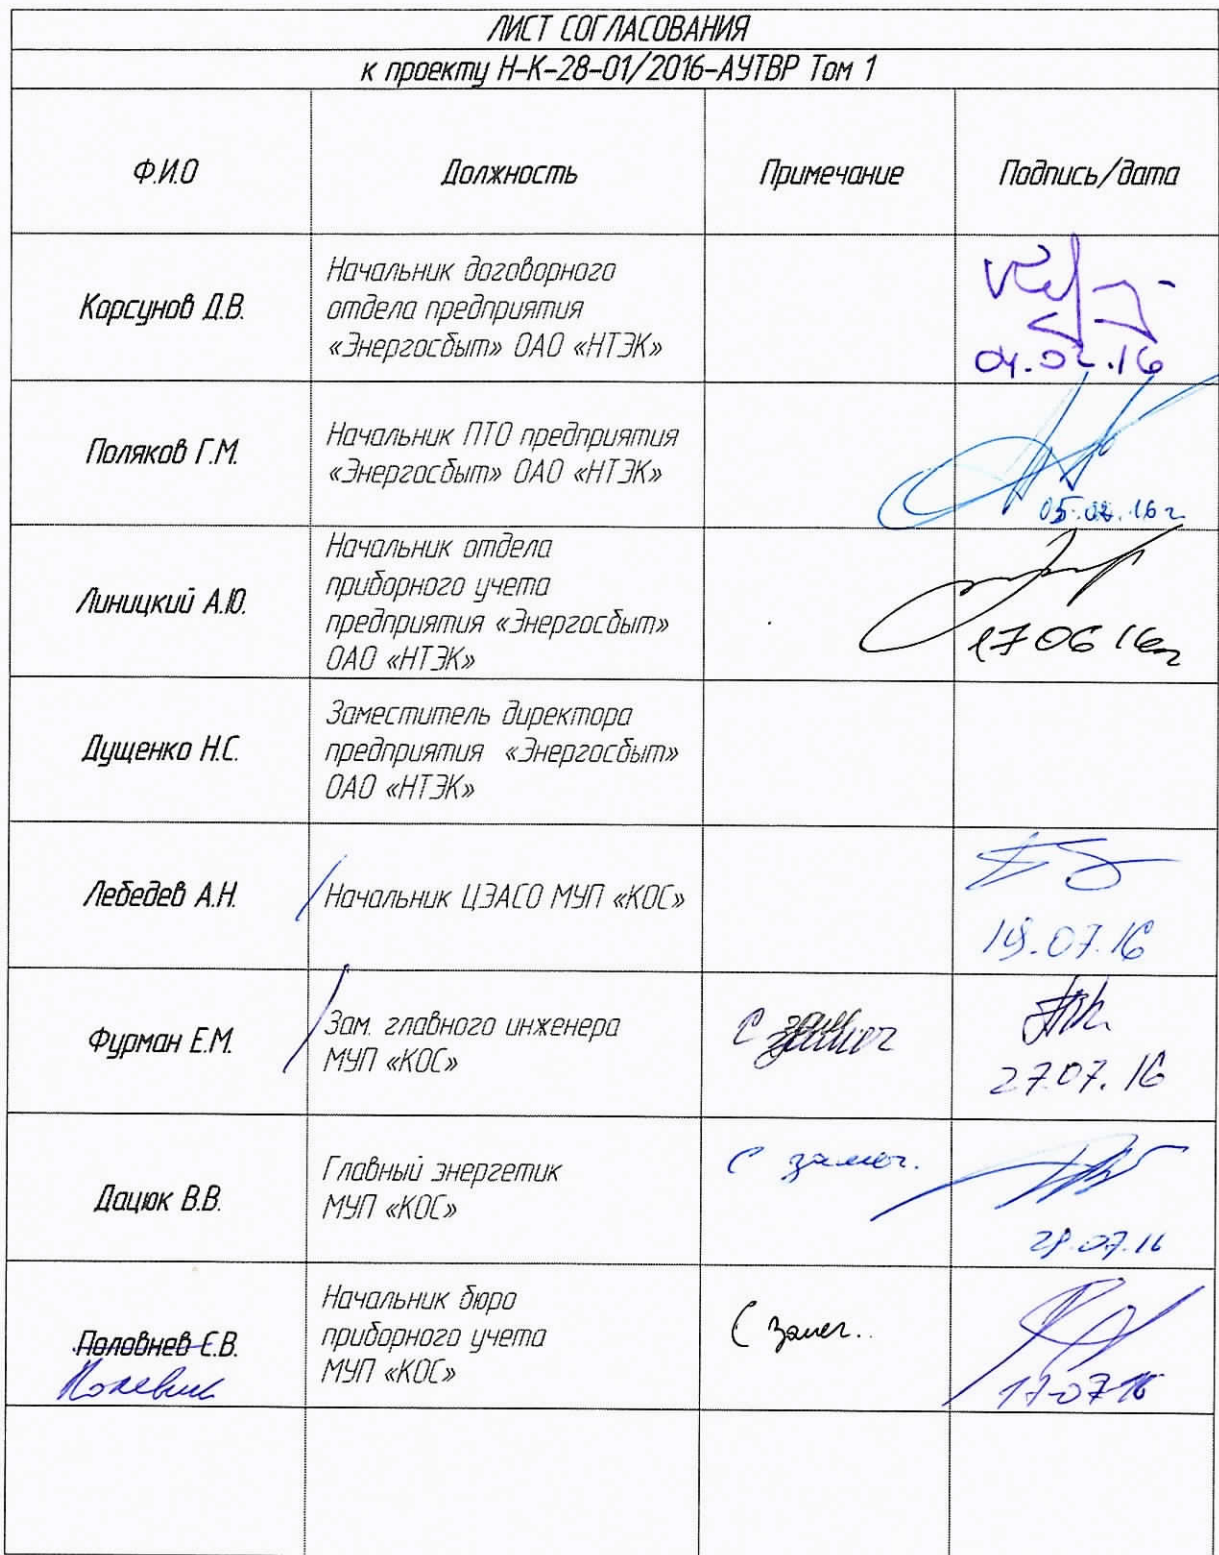 ЛИСТ СОГЛАСОВАНИЯ
к проекту Н-К-28-01/2016-АУТВР Том 1
Ф.И.О Должность Примечание Подпись/дата
Корсунов Д.В.
Начальник договорного
отдела предприятия
«Энергосбыт» ОАО «НТЭК»
04.02.16
Поляков Г.М.
Начальник ПТО предприятия
«Энергосбыт» ОАО «НТЭК»
05.02.16 г.
Линицкий А.Ю.
Начальник отдела
приборного учета
предприятия «Энергосбыт»
ОАО «НТЭК»
17 06 16г
Дущенко Н.С.
Заместитель директора
предприятия «Энергосбыт»
ОАО «НТЭК»
Лебедев А.Н.
Начальник ЦЭАСО МУП «КОС»
19.07.16
Фурман Е.М.
Зам. главного инженера
МУП «КОС»
С замеч
27.07.16
Дацюк В.В.
Главный энергетик
МУП «КОС»
С замеч.
07.16
Половнев Е.В.
Начальник бюро
приборного учета
МУП «КОС»
С замеч..
17-07-16